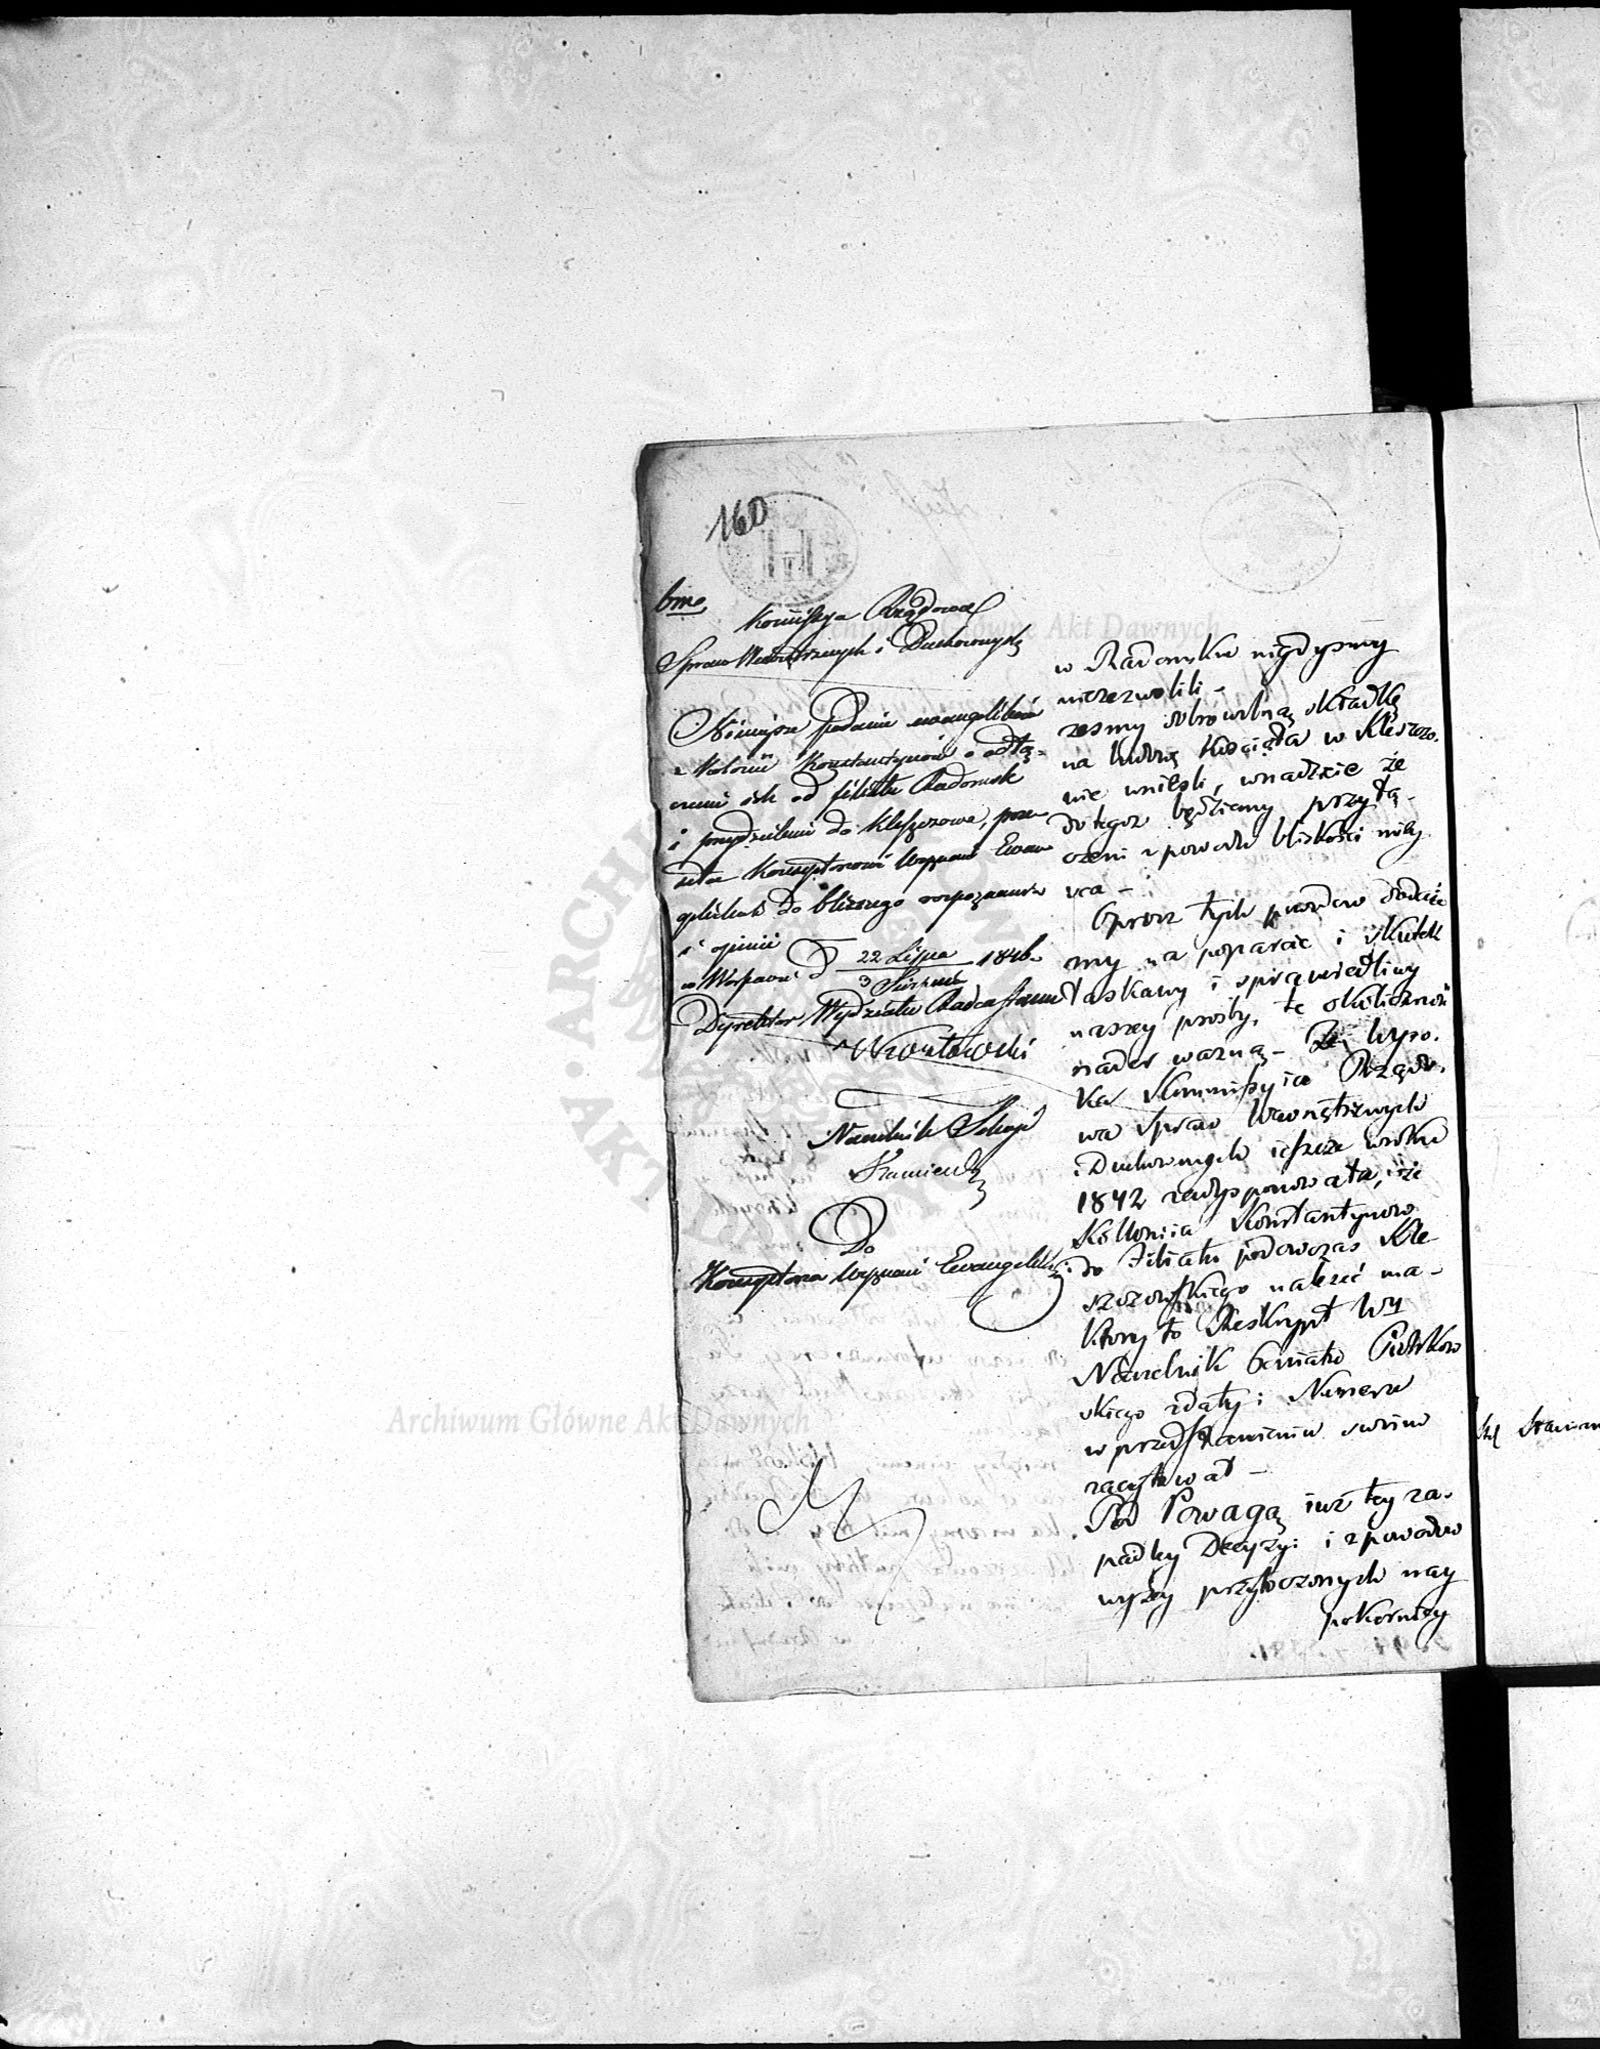 160
bmo
Kommissya Rządowa
Spraw Wewnętrznych i Duchownych
Niniejsze podanie ewangelików
z Kolonii Konstantynów o odłą-
czenie ich od filiału Radomsk
i przydzielenie do Kleszczowa, prze-
syła Konsystorzowi Wyznań Ewan
gelickich do bliższego rozpoznania
i opinii
w Warszawie d 22 Lipca 1846.
3 Sierpnia
Dyrektor Wydziału Radca Stanu
Naczelnik Sekcyi
Do
Konsystorza Wyznań Ewangelickich
w Radomsku nigdyśmy
niezezwolili -
żeśmy dobrowolną składkę
na budowę Kościoła w Kleszczo-
wie wnieśli, w nadzieie że
do tegoż będziemy przyłą-
czeni z powodu bliskości mieys
ca -
Oprócz tych powodów dodaie
my na poparcie i skutek
łaskawy i sprawiedliwy
naszey prośby, te okoliczność
nader ważną - Że Wyso.
ka Kommissyia Rządo.
wa Spraw Wewnętrznych
i Duchownych ieszcze w roku
1842 zadysponowała, że
Kolloniia Konstantynow
do Filiału podówczas Kle-
szczowskiego należeć ma -
który to Reskrypt Wy
Naczelnik Powiatu Piotrkow
skiego z daty i Numeru
w przedstawieniu swoim
zacytował -
Pod Powagą iuż tey za-
padłey Decyzyi i z powodów
wyżey przytoczonych nay
pokorniey
Archiwum Główne Akt Dawnych
Archiwum Główne Akt Dawnych